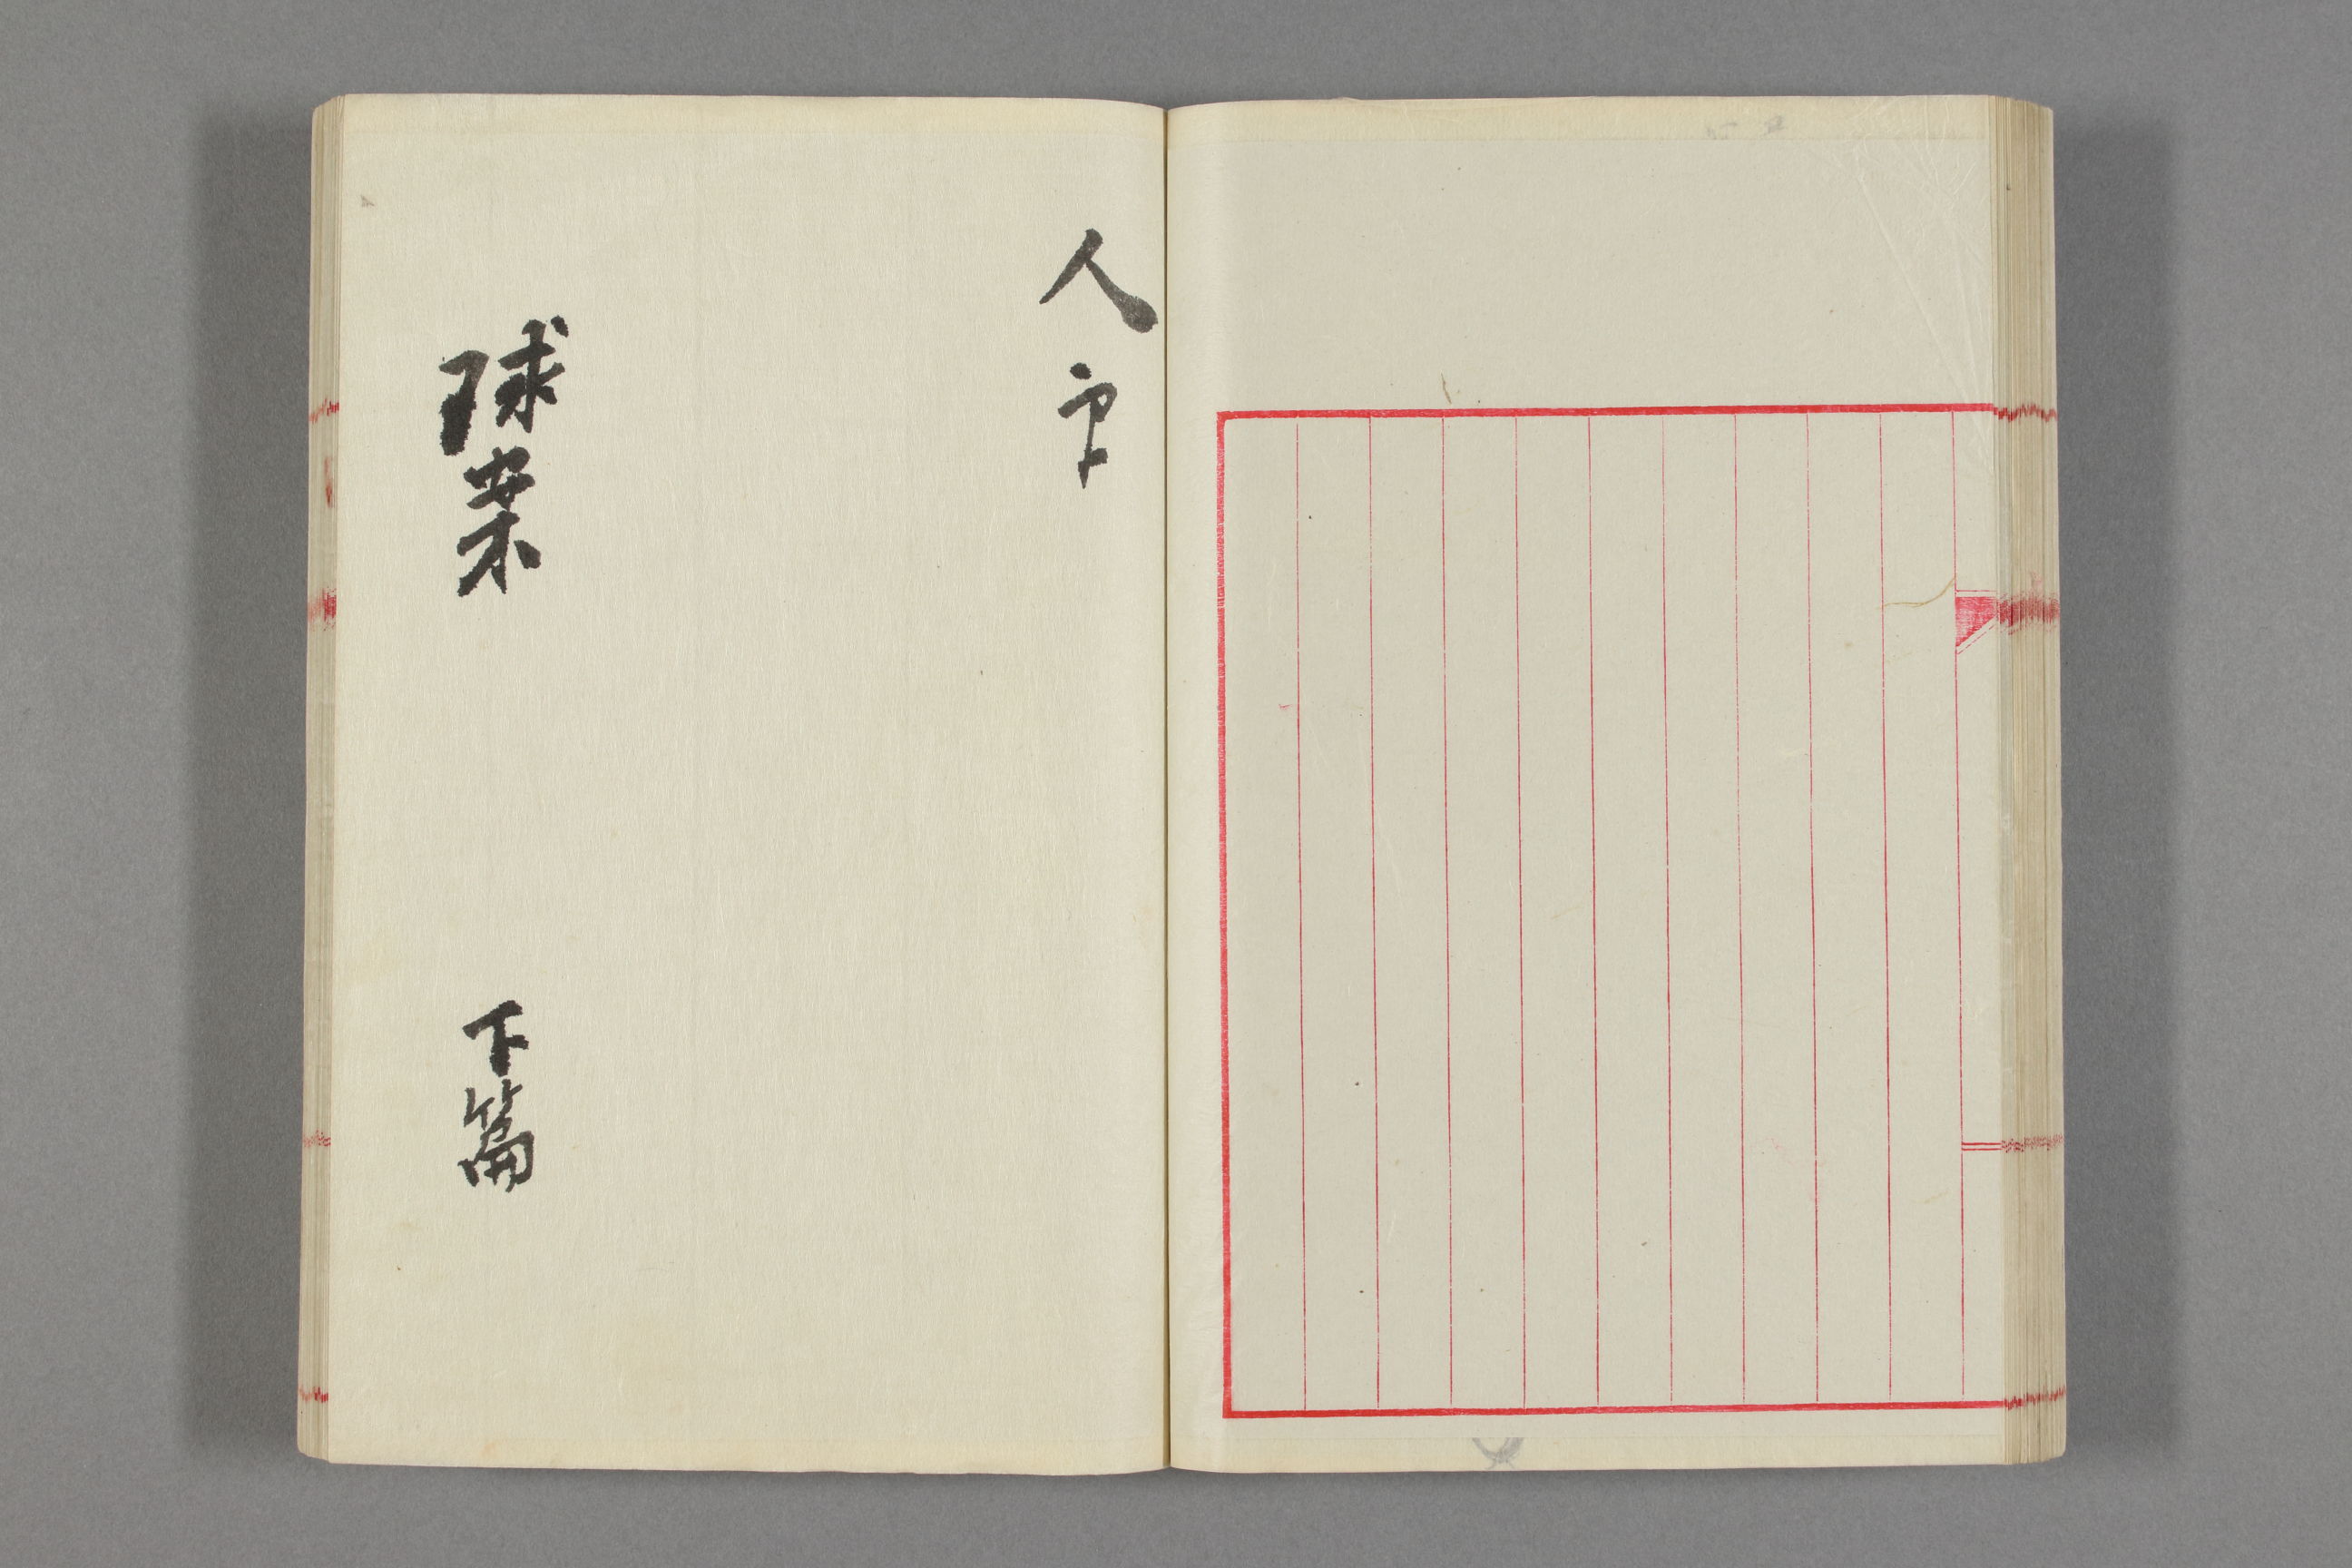 人
球案 下篇